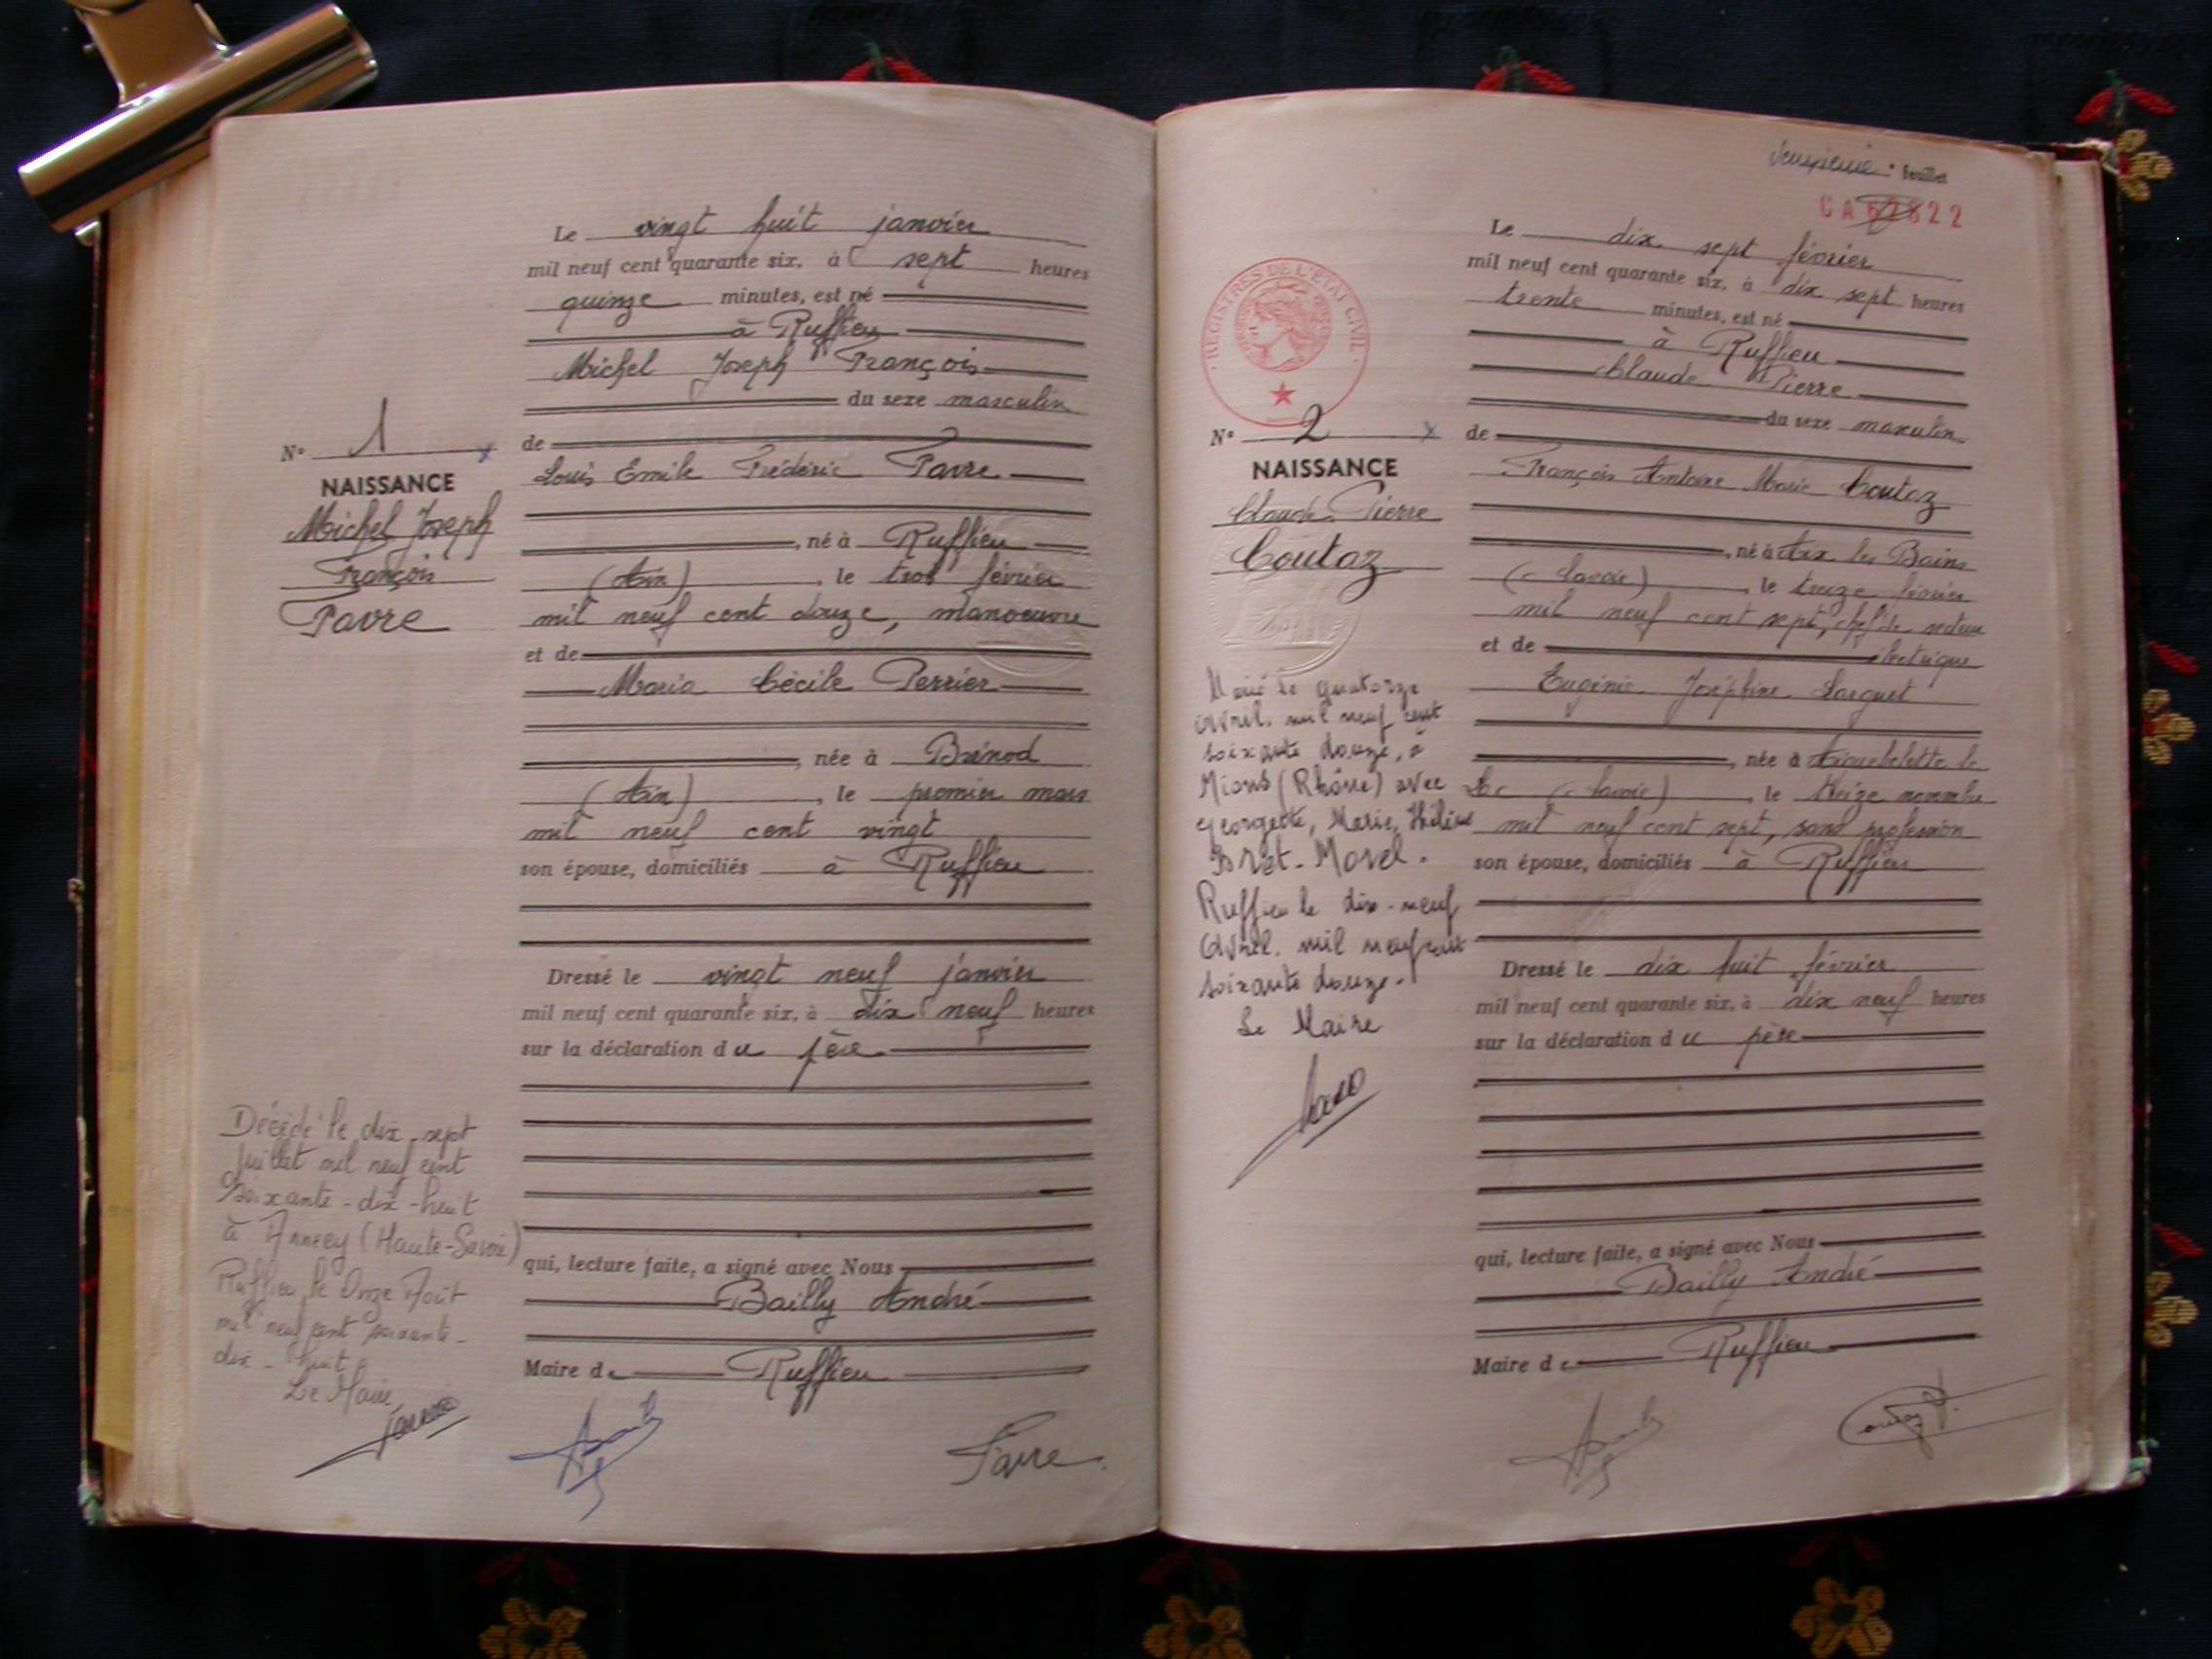 Le vingt huit janvier
mil neuf cent quarante six, à sept heures
quinze minutes, est né
à Ruffieu
Michel Joseph François
du sexe masculin
N° 1
NAISSANCE
Michel Joseph
François
Favre
de
Louis Emile Frédéric Favre
, né à Ruffieu
(Ain), le trois février
mil neuf cent douze, manoeuvre
et de
Maria Cécile Perrier
, née à Brénod
(Ain), le premier mars
mil neuf cent vingt
son épouse, domiciliés à Ruffieu
Dressé le vingt neuf janvier
mil neuf cent quarante six, à dix neuf heures
sur la déclaration du père
qui, lecture faite, a signé avec Nous
Bailly André
Maire de Ruffieu
Favre
Décédé le dix-sept
Juillet mil neuf cent
soixante-dix-huit
à Annecy (Haute-Savoie)
Ruffieu le Onze Août
mil neuf cent soixante-
dix-huit
Le Maire
feuillet
CA 22
Le dix sept février
mil neuf cent quarante six, à dix sept heures
trente minutes, est né
à Ruffieu
Claude Pierre
du sexe masculin
REGISTRES DE L'ETAT CIVIL
N° 2
NAISSANCE
Claude Pierre
Coutaz
de
François Antoine Marie Coutaz
, né à Aix les Bains
(Savoie), le treize février
mil neuf cent sept, chef de secteur
électrique
et de
Eugénie Joséphine Larguet
, née à Aiguebelette le
Lac (Savoie), le treize novembre
mil neuf cent sept, sans profession
son épouse, domiciliés à Ruffieu
Dressé le dix huit février
mil neuf cent quarante six, à dix neuf heures
sur la déclaration du père
qui, lecture faite, a signé avec Nous
Bailly André
Maire de Ruffieu
Marié le quatorze
avril mil neuf cent
soixante douze, à
Mions (Rhône) avec
Georgette, Marie, Hélène
Bret-Morel.
Ruffieu le dix-neuf
avril mil neuf cent
soixante douze.
Le Maire